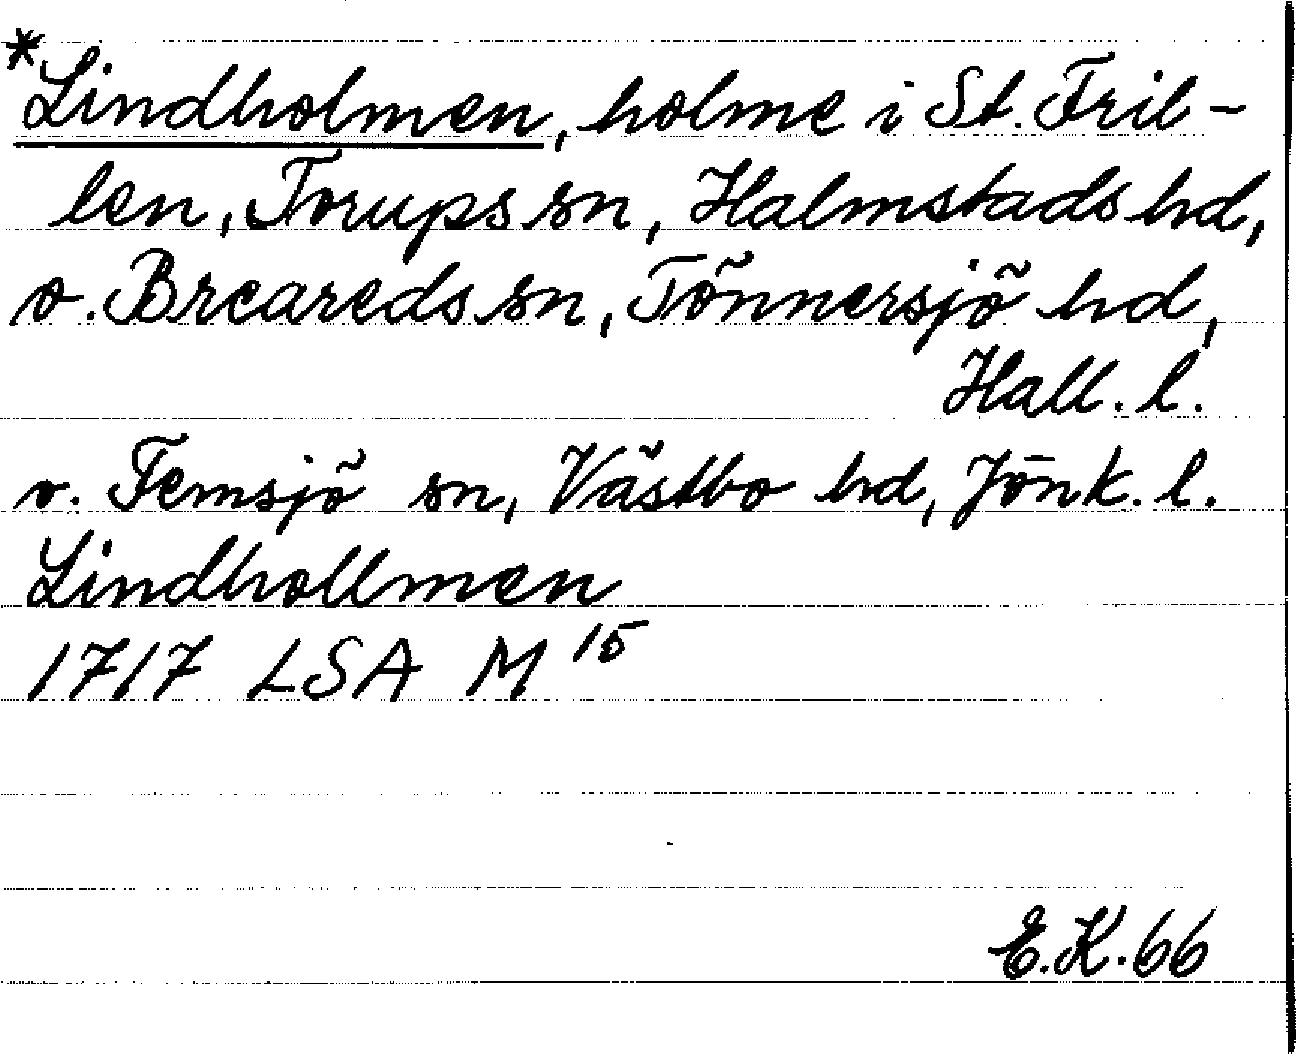 *Lindholmen, holme i St. Fril-
len, Torups sn, Halmstads hd,
o. Breareds sn, Tönnersjö hd,
Hall. l.
v. Femsjö sn, Västbo hd, Jönk. l.
Lindhollmen
1717 LSA M 15
E.K. 66